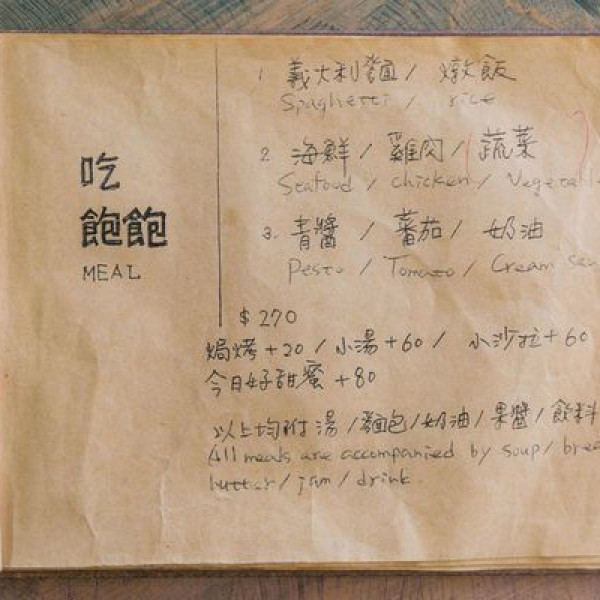 吃
飽飽
MEAL
1 義大利麵 / 燉飯
Spaghetti / rice
2. 海鮮 / 雞肉 / 蔬菜
Seafood / chicken / Vegetabl
3. 青醬 / 蕃茄 / 奶油
Pesto / Tomato / Cream
$270
焗烤+20 / 小湯+60 / 小沙拉+60
今日好甜蜜 +80
以上均附湯 / 麵包 / 奶油 / 果醬 / 飲料
All meals are accompanied by soup / brea
butter / jam / drink.